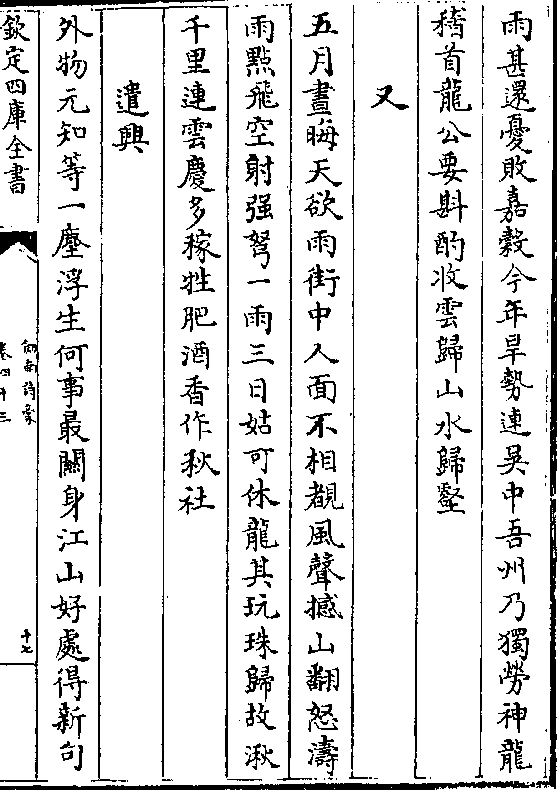 雨甚還憂敗嘉穀今年旱勢連吳中吾州乃獨勞神龍
稽首龍公要斟酌收雲歸山水歸壑
又
五月晝晦天欲雨街中人面不相覩風聲撼山翻怒濤
雨㸃飛空射强弩一雨三日姑可休龍其玩珠歸故湫
千里連雲慶多稼牲肥酒香作秋社
遣興
外物元知等一塵浮生何事最關身江山好處得新句
欽定四庫全書
劍南詩藁
卷四十三
十七